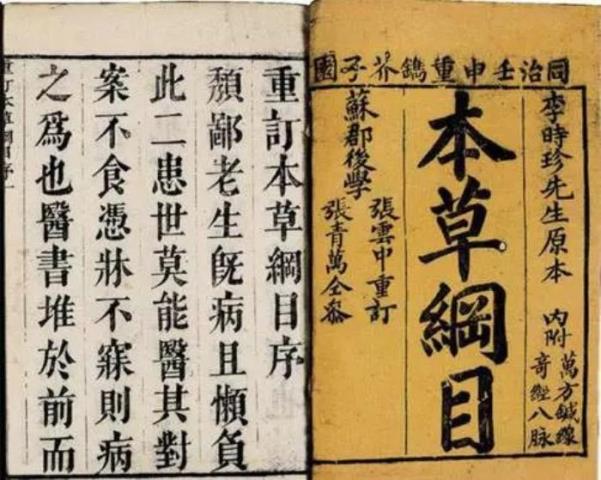 同治壬申重鐫芥子園
李時珍先生原本 內附
萬方鍼線
奇經八脉
本草綱目
蘇郡後學
張雲中重訂
張青萬仝叅
重訂本草綱目序
頽鄙老生旣病且懶負
此二患世莫能醫其對
案不食憑牀不寐則病
之爲也醫書堆於前而
重訂本草綱目序一